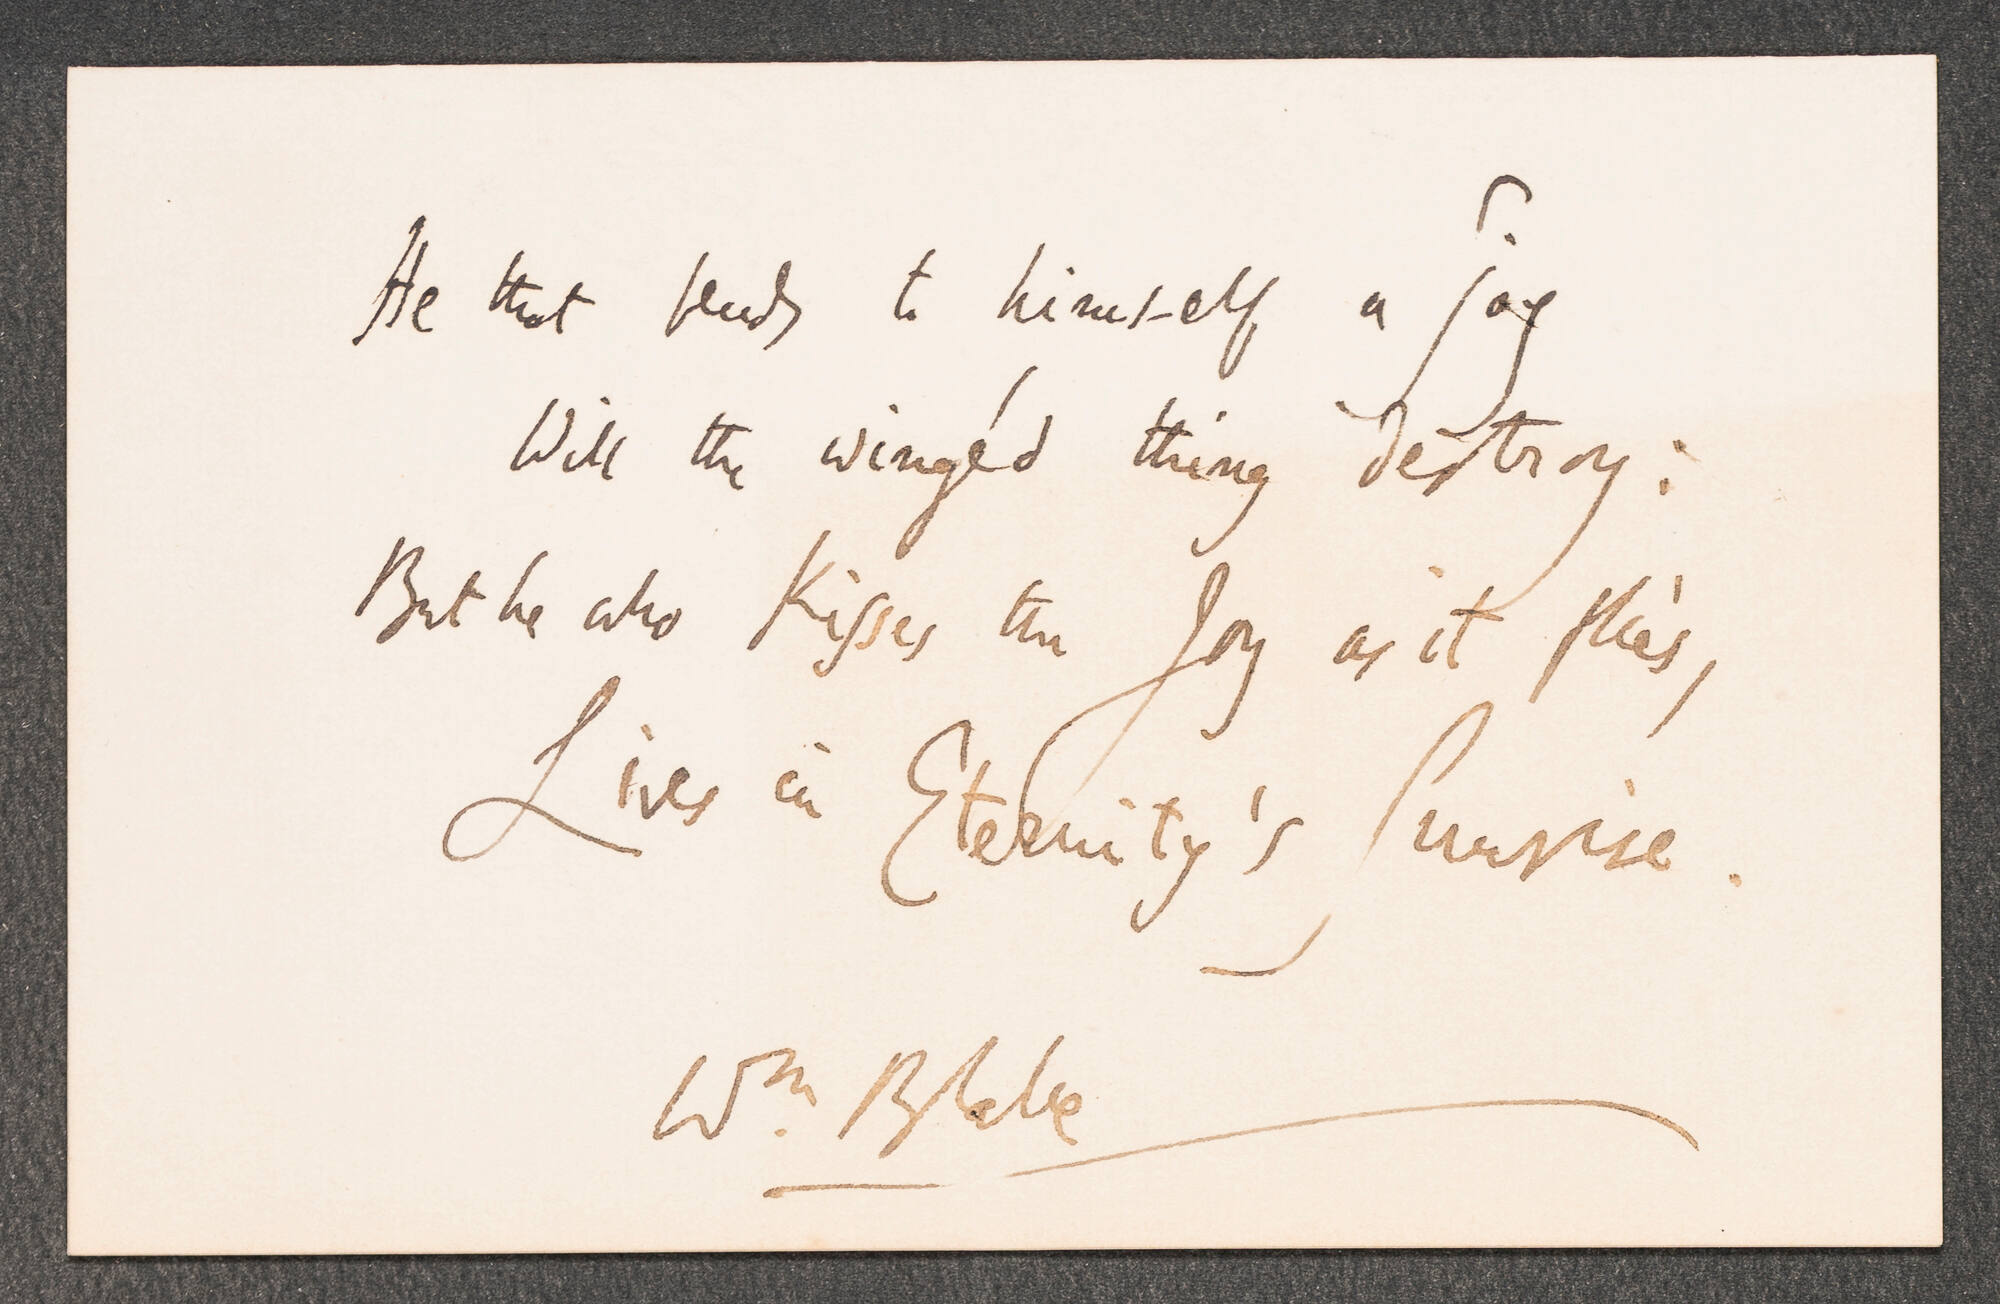 He that bends to himself a Joy
Will the wingéd thing destroy:
But he who Kisses the Joy as it flies,
Lives in Eternity's Sunrise.
Wm. Blake